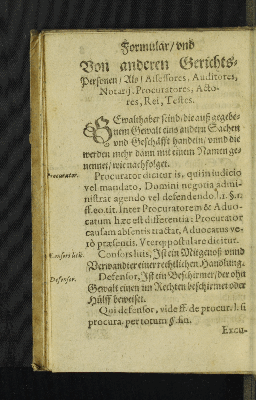 Formular/ vnd
Von anderen Gerichts-
Personen/ Als/ Assessores, Auditores,
Notarij, Procuratores, Acto-
res, Rei, Testes.
GEwalthaber seind/ die auß gegebe-
nem Gewalt eins andern Sachen
vnd Geschäfft handeln/ vnnd die
werden mehr dann mit einem Namen ge-
nennet/ wie nachfolget.
Procurator.
Procurator dicitur is, qui in iudicio
vel mandato, Domini negotia admi-
nistrat agendo vel defendendo. l. 1. §. 1.
ff. eo. tit. Inter Procuratorem & Aduo-
catum hæc est differentia: Procurator
causam absentis tractat, Aduocatus ve-
rò præsentis. Vterq; postulare dicitur.
Consors litis.
Consors litis, Ist ein Mitgenoß vnnd
Verwandter einer rechtlichen Handlung.
Defensor.
Defensor, Ist ein Beschirmer/ der ohn
Gewalt einen im Rechten beschirmet oder
Hülff beweiset.
Qui defensor, vide ff. de procur. l. si
procura. per totum §. fin.
Excu-